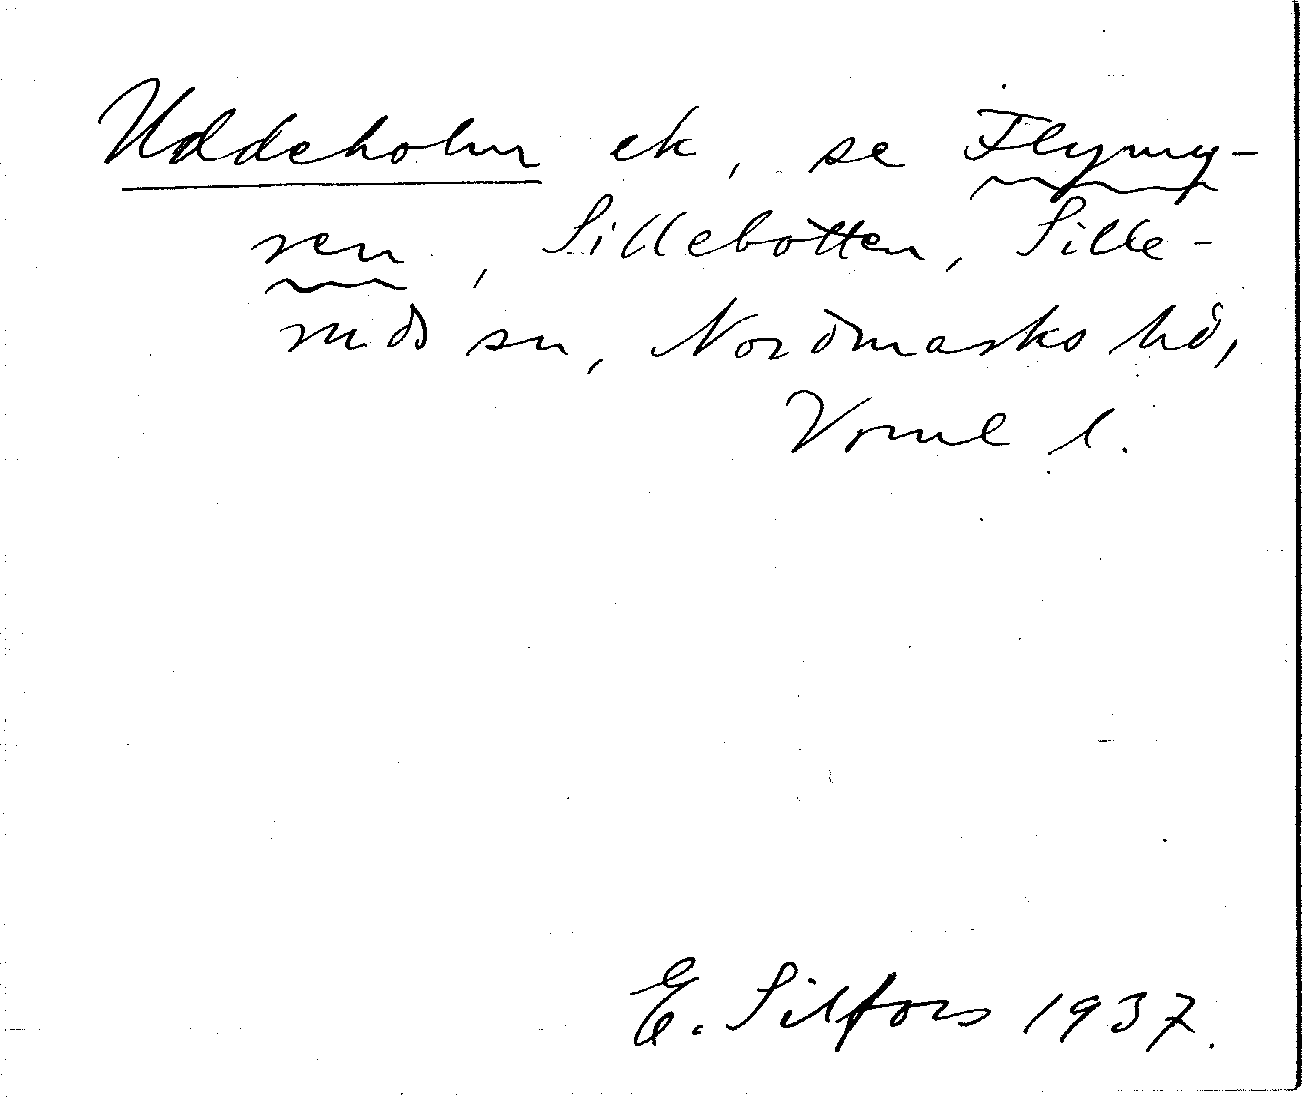 Uddeholm ek, se Flymy-
ren, Sillebotten, Sille-
ruds sn, Nordmarks hd,
Vrml l.
E. Silfors 1937.